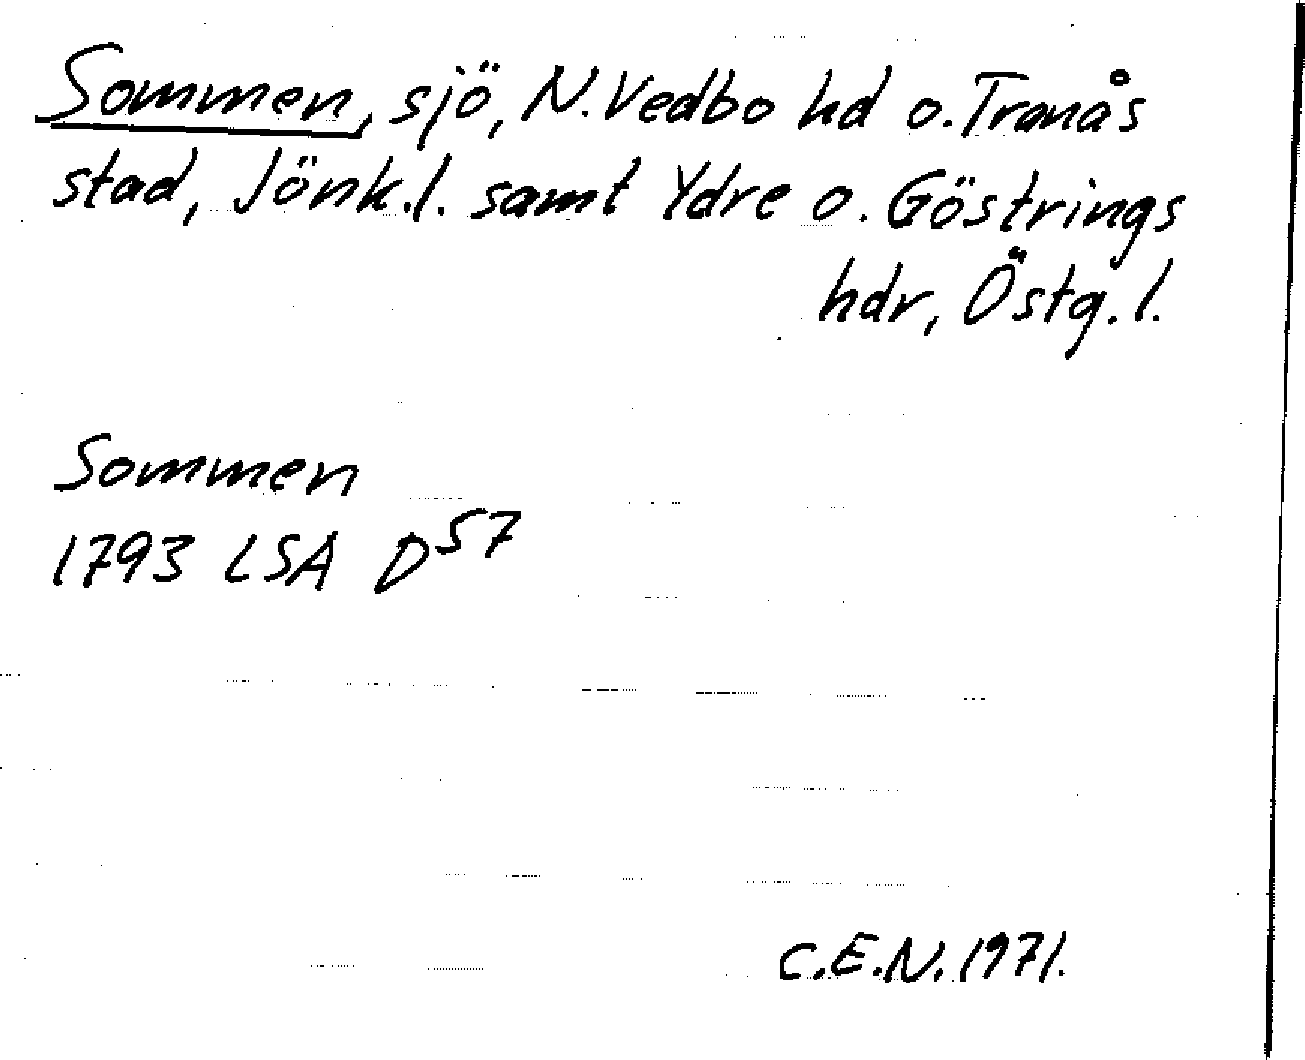 Sommen, sjö, N. Vedbo hd o. Tranås
stad, Jönk. l. samt Ydre o. Göstrings
hdr, Östg. l.
Sommen
1793 LSA D57
C.E.N. 1971.